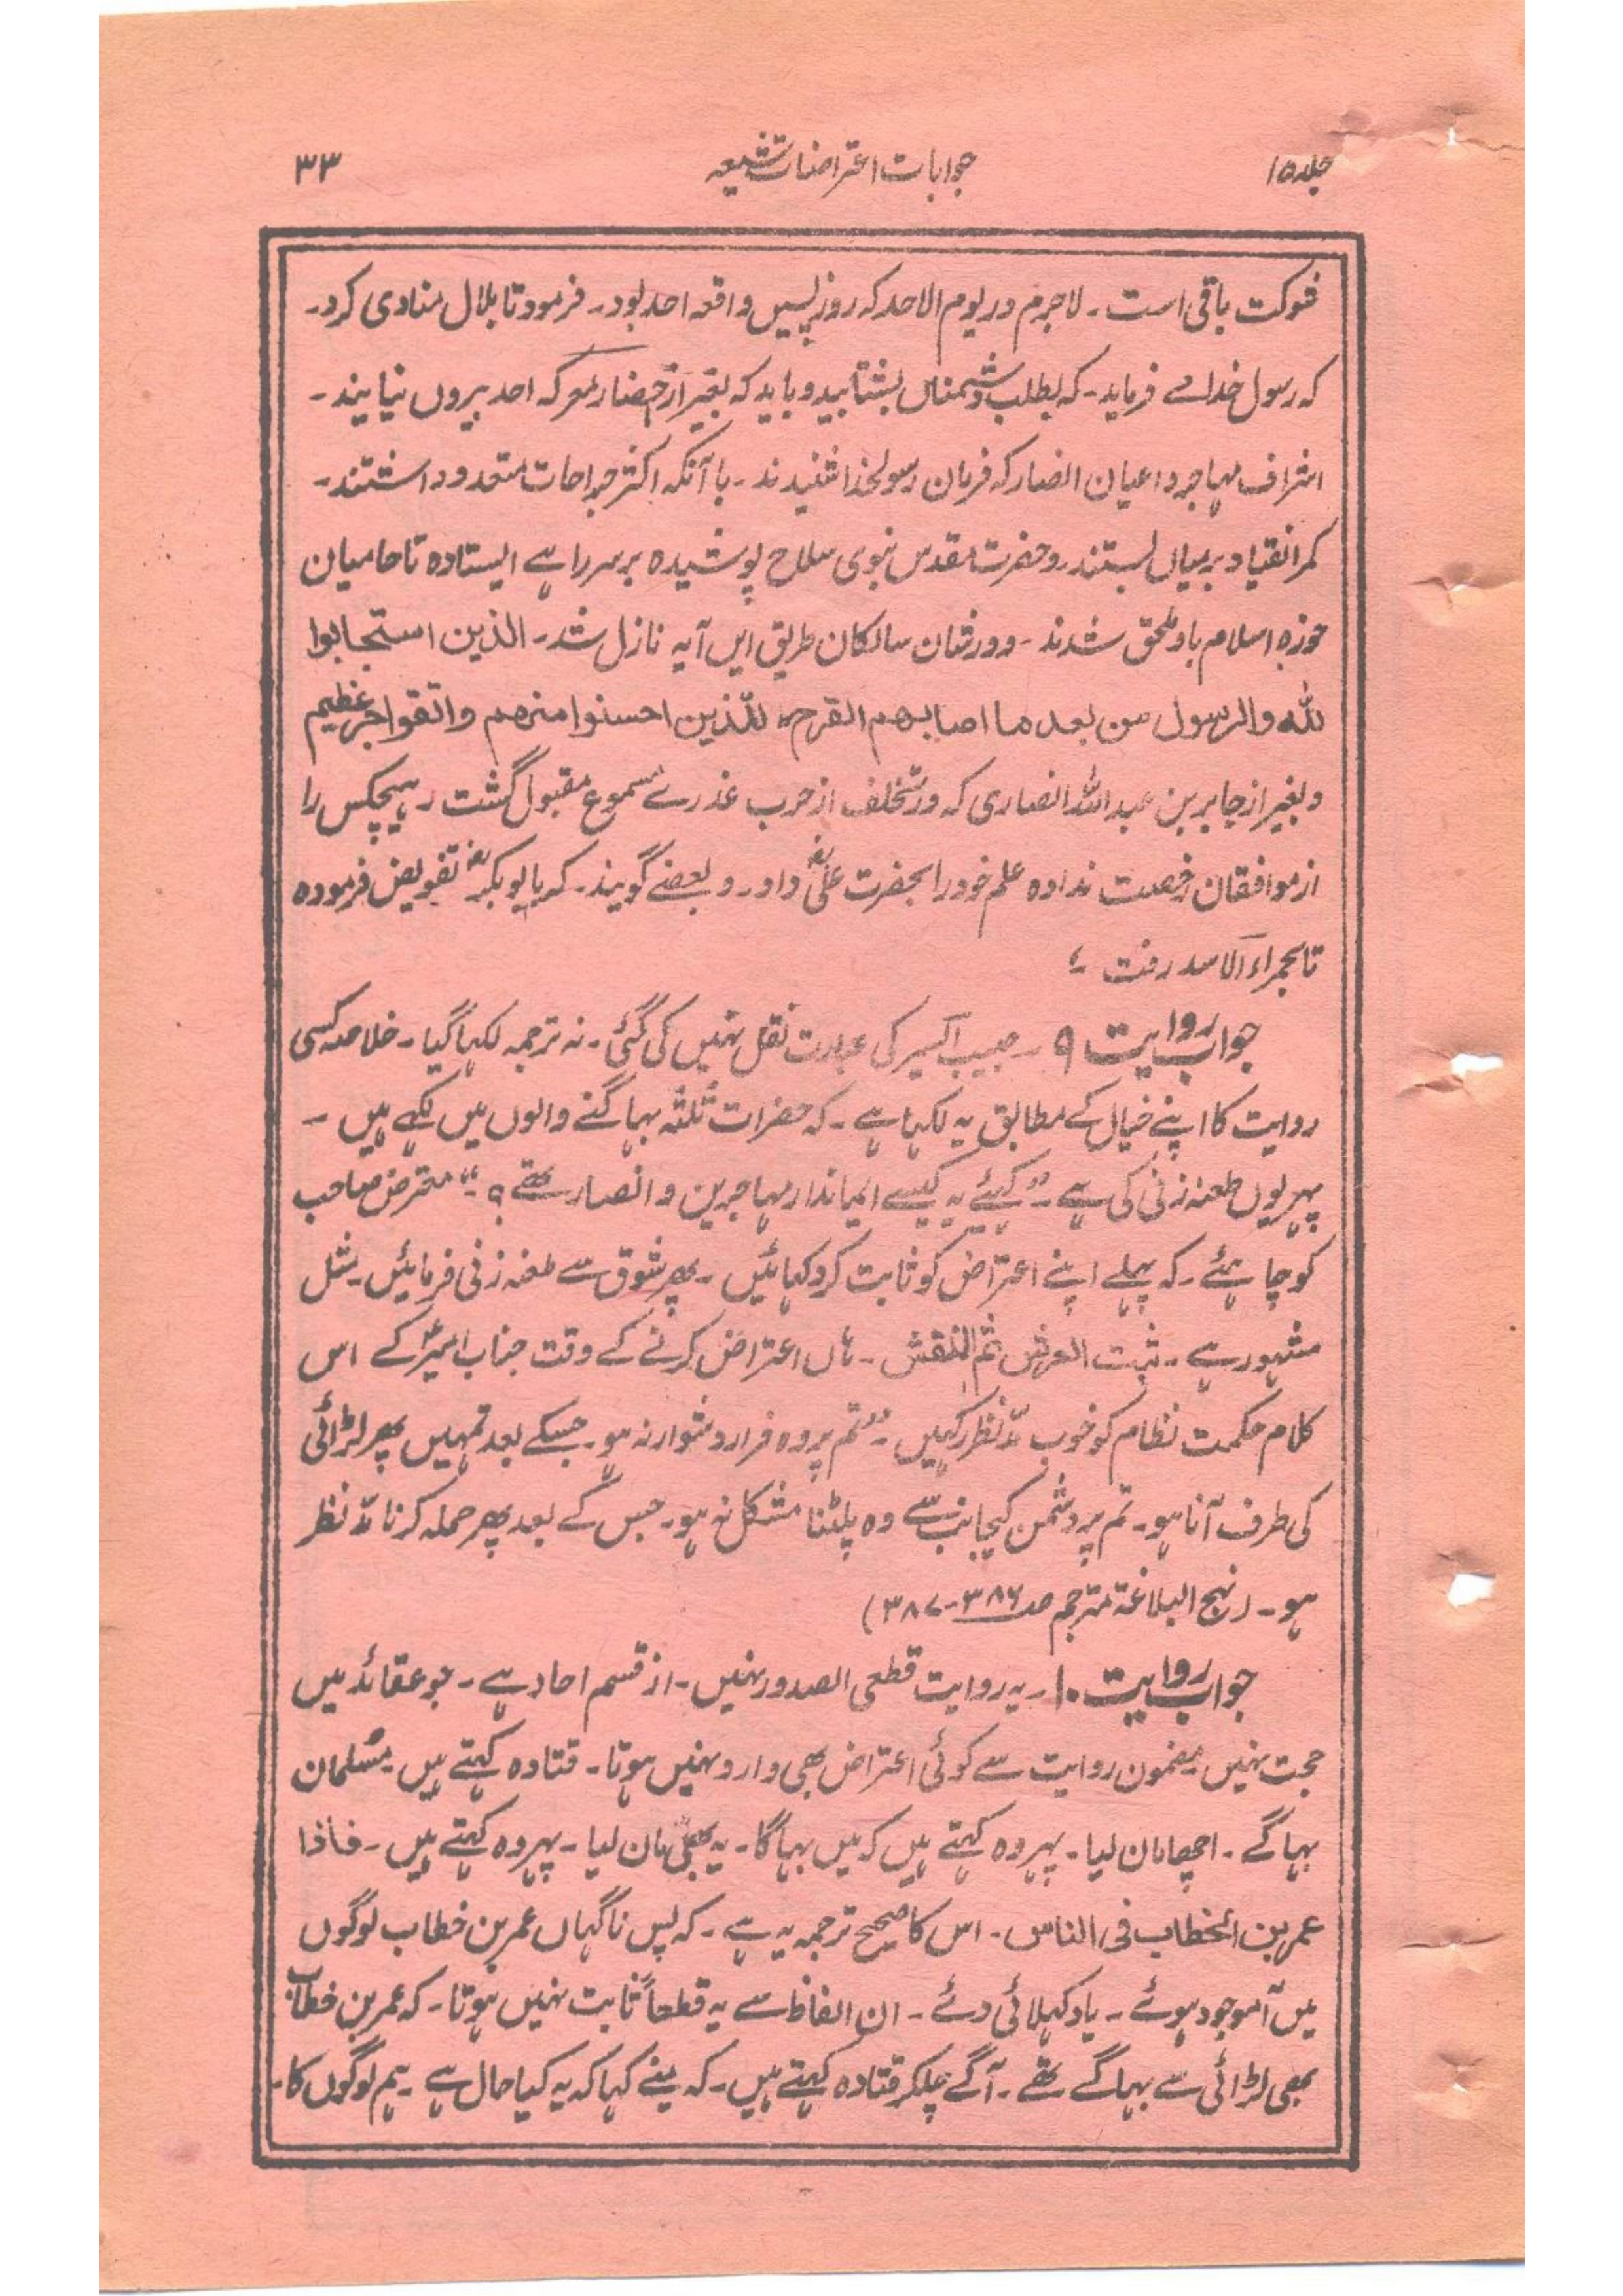 جلد ۱۵
جوابات اعتراضات شیعہ
۳۳
شوکت باقی است ۔ لاجرم در یوم الاحد کہ روز پسیں واقعہ احد بود ۔ فرمود تا بلال منادی کرد ۔
کہ رسول خدائے فرماید ۔ کہ بطلب دشمناں بشتابید و باید کہ بغیر از حضار معرکہ احد بیروں نیایند ۔
اشراف مہاجر و اعیان انصار کہ فرمان رسولخدا شنیدند ۔ با آنکہ اکثر جراحات متعدد داشتند ۔
کمر انقیاد بر میاں بستند ۔ و حضرت مقدس نبوی سلاح پوشیدہ بر سر راہے ایستادہ تا حامیان
حوزہ اسلام باو ملحق شدند ۔ و در شان سالکان طریق ایں آیہ نازل شد ۔ الذین استجابوا
للّٰہ والرسول من بعد ما اصابہم القرح للذین احسنوا منہم واتقوا اجر عظیم
و بغیر از جابر بن عبد اللہ انصاری کہ در تخلف از حرب عذرے مسموع مقبول گشت ۔ ہیچکس را
از موافقان رخصت نداده علم خود را بحضرت علیؓ داد ۔ و بعضے گویند ۔ کہ بابو بکرؓ تفویض فرموده
تا بحمراء الاسد رفت ؛
جواب روایت ۹ ۔ حبیب السیر کی عبارت نقل نہیں کی گئی ۔ نہ ترجمہ لکہا گیا ۔ خلاصہ کسی
روایت کا اپنے خیال کے مطابق یہ لکہا ہے ۔ کہ حضرات ثلثہ بہاگنے والوں میں لکہے ہیں ۔
پہر یوں طعنہ زنی کی ہے ۔ “کہیئے یہ کیسے ایماندار مہاجرین و انصار تھے ؟ ۔“ معترض صاحب
کو چاہئے ۔ کہ پہلے اپنے اعتراض کو ثابت کر دکہائیں ۔ پھر شوق سے طعنہ زنی فرمائیں ۔ مثل
مشہور ہے ۔ ثبت العرش ثم انقش ۔ ہاں اعتراض کرنے کے وقت جناب امیرؑ کے اس
کلام حکمت نظام کو خوب مدّ نظر رکہیں ۔ “تم پر وہ فرار دشوار نہ ہو ۔ جسکے بعد تمہیں پھر لڑائی
کی طرف آنا ہو ۔ تم پر دشمن کیجانب سے وہ پلٹنا مشکل نہ ہو ۔ جس کے بعد پھر حملہ کرنا مدّ نظر
ہو ۔ (نہج البلاغۃ مترجم صـ۳۸۶ - ۳۸۷)
جواب روایت ۱۰ ۔ یہ روایت قطعی الصدور نہیں ۔ از قسم احاد ہے ۔ جو عقائد میں
حجت نہیں ۔ مضمون روایت سے کوئی اعتراض بھی وارد نہیں ہوتا ۔ قتادہ کہتے ہیں ۔ مسلمان
بہاگے ۔ اچھا مان لیا ۔ پہر وہ کہتے ہیں کہ میں بہاگا ۔ یہ بھی مان لیا ۔ پہر وہ کہتے ہیں ۔ فاذا
عمر بن الخطاب فی الناس ۔ اس کا صحیح ترجمہ یہ ہے ۔ کہ پس ناگہاں عمر بن خطاب لوگوں
میں آ موجود ہوئے ۔ یا دکہلائی دئے ۔ ان الفاظ سے یہ قطعاً ثابت نہیں ہوتا ۔ کہ عمر بن خطاب
بھی لڑائی سے بہاگے تھے ۔ آگے چلکر قتادہ کہتے ہیں ۔ کہ مینے کہا کہ یہ کیا حال ہے ۔ ہم لوگوں کا ۔